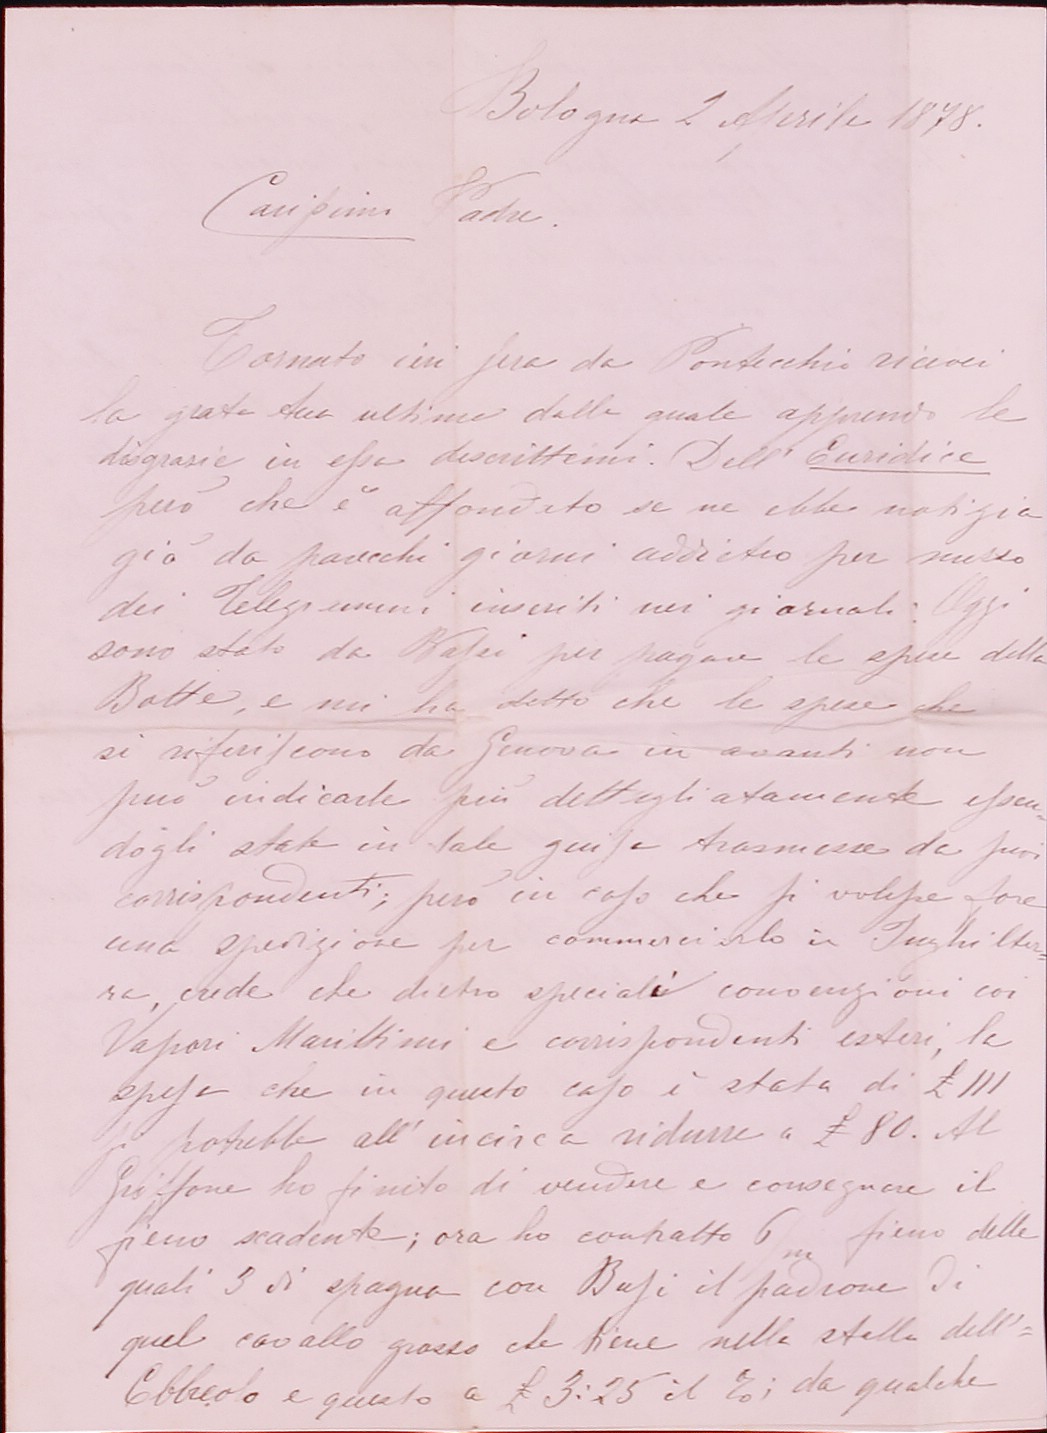 Bologna 2 Aprile 1878.
Carissimo Padre.
Tornato ieri sera da Pontecchio ricevei
la grata tua ultima dalla quale apprendo le
disgrazie in essa descrittemi. Dell' Euridice
però che è affondato se ne ebbe notizia
già da parecchi giorni addietro per mezzo
dei Telegrammi inseriti nei giornali. Oggi
sono stato da per pagare le spese della
Botte, e mi ha detto che le spese che
si riferiscono da Genova in avanti non
può indicarle più dettegliatamente essen=
dogli state in tale guisa trasmesse da suoi
corrispondenti; però in caso che si volesse fare
una spedizione per commerciarlo in Inghilter=
ra, crede che dietro speciali convenzioni coi
Vapori Marittimi e corrispondenti esteri, la
spesa che in questo caso è stata di £ 111
si potrebbe all' incirca ridurre a £ 80. Al
Griffone ho finito di vendere e consegnare il
fieno scadente; ora ho contratto 6/m fieno delle
quali 3 di spagna con Busi il padrone di
quel cavallo grosso che tiene nella stalla dell'=
Ebbreolo e questo a £ 3:25 il ; da qualche